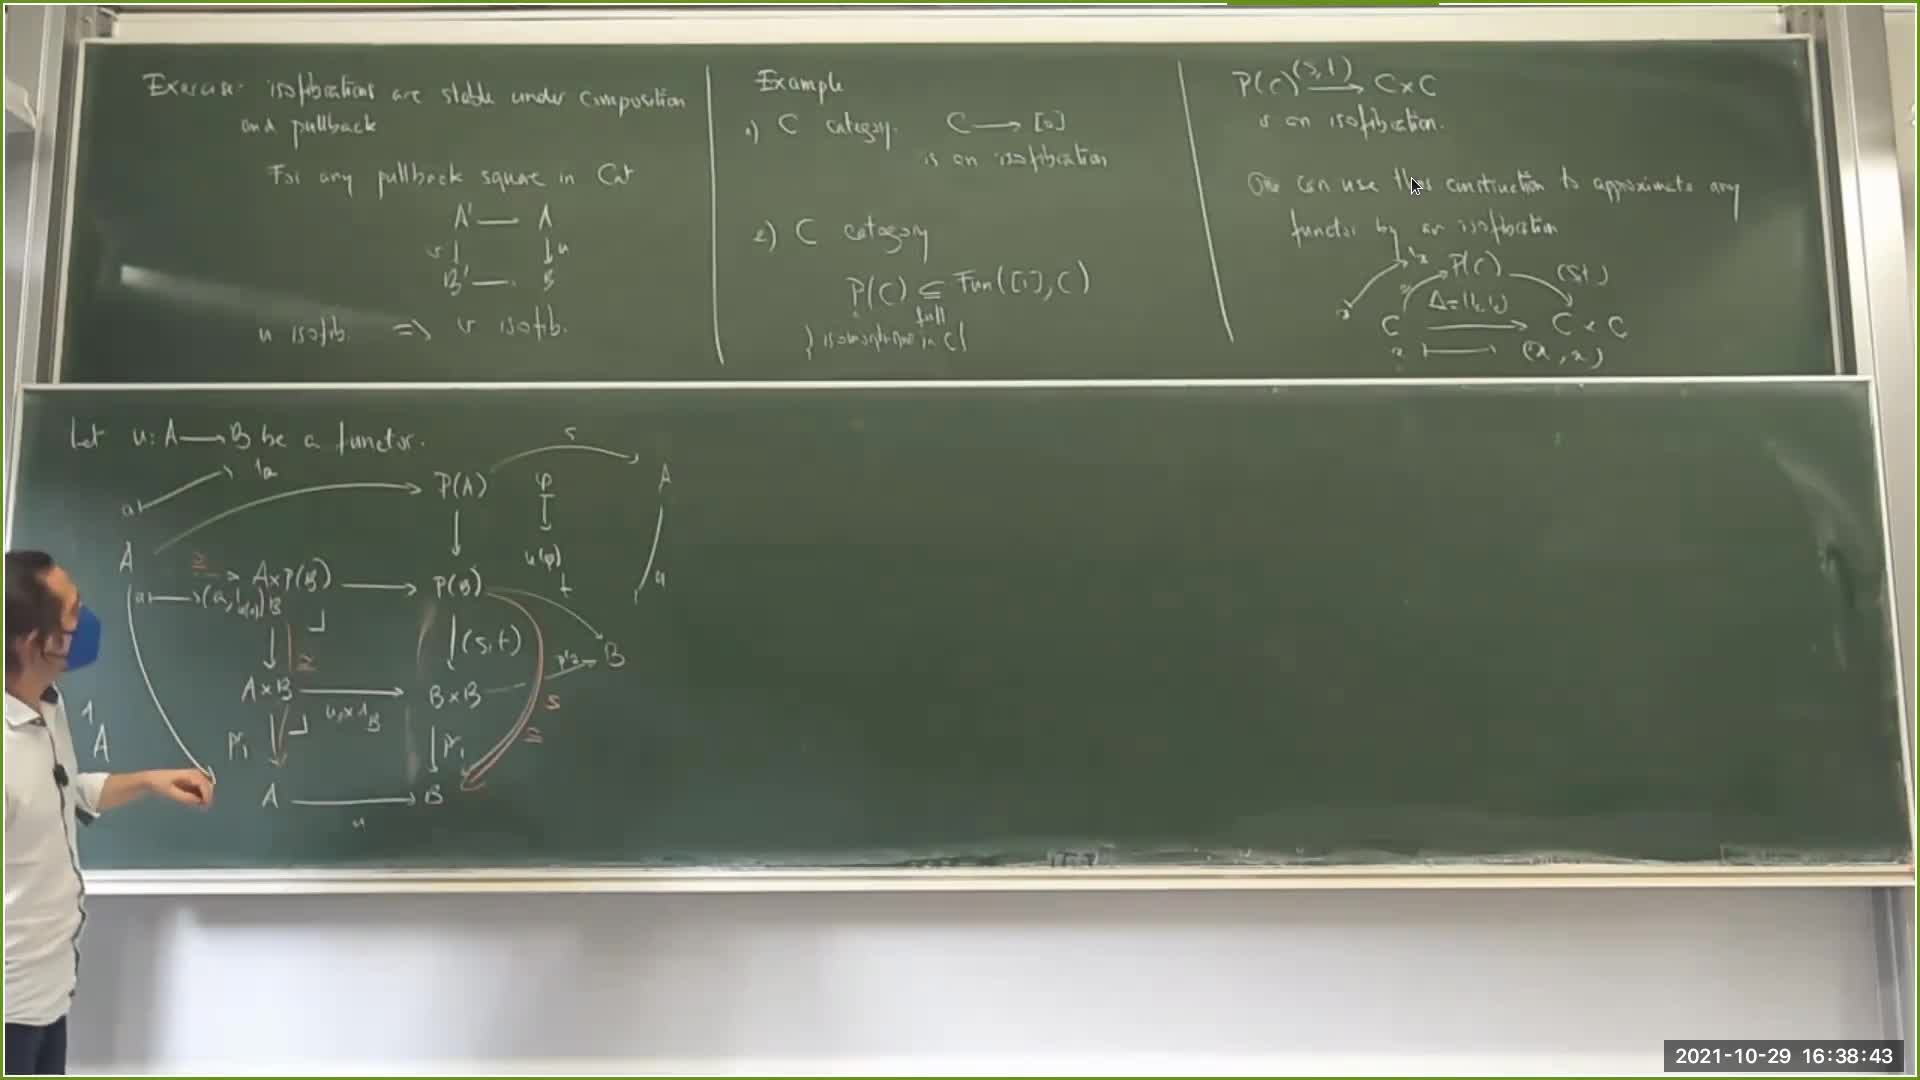 Exercise: isofibrations are stable under composition
and pullback
For any pullback square in Cat
A' — A
v ↓ ↓ u
B' — B
u isofib. ⇒ v isofib.
Example
1) C category. C → [0]
is an isofibration
2) C category
P(C) ⊆ Fun([1], C)
full
} isomorphisms in C {
P(C) (s,t) → C×C
is an isofibration.
One can use this construction to approximate any
functor by an isofibration
x ↦ 1x P(C) (s,t)
Δ=(1,1)
C → C × C
x ↦ (x, x)
Let u: A → B be a functor.
a ↦ 1a
s
P(A) φ A
A ≅ A×P(B) → P(B) u(φ) t u
a ↦ (a, 1u(a)) B
≅ (s,t)
A×B → B×B pr2 → B
u×1B s
1A pr1 pr1 ≅
A → B
u
2021-10-29 16:38:43